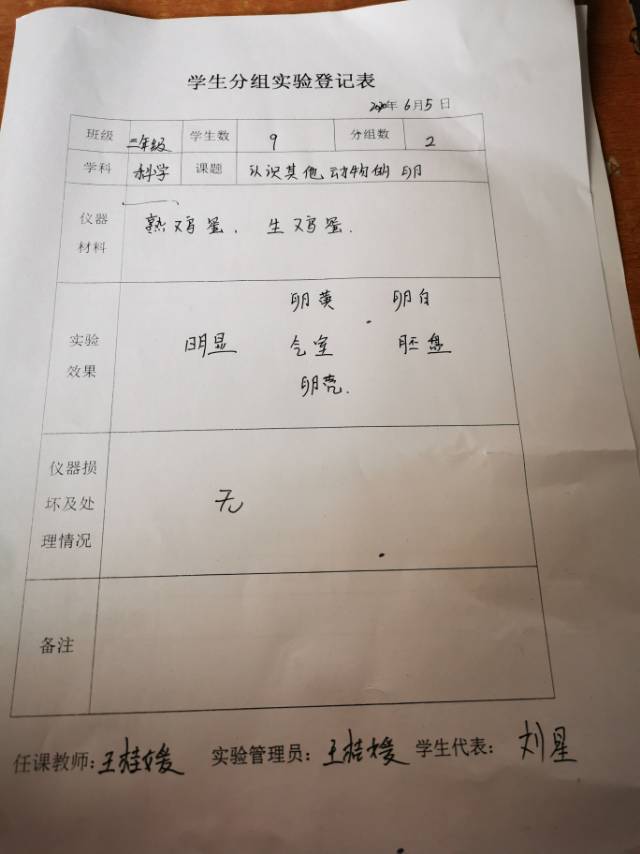 学生分组实验登记表
2020年6月5日
班级 三年级 学生数 9 分组数 2
学科 科学 课题 认识其他动物的卵
仪器
材料
熟鸡蛋、生鸡蛋.
实验
效果
卵黄 卵白
明显 气室 胚盘
卵壳.
仪器损
坏及处
理情况
无
备注
任课教师:王桂媛 实验管理员:王桂媛 学生代表:刘星